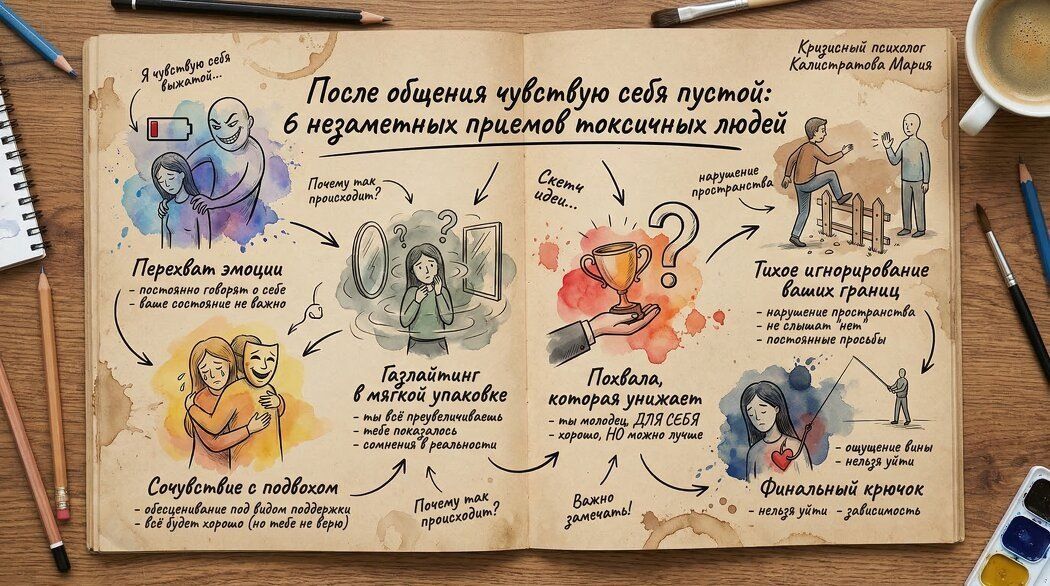 Я чувствую себя
выжатой...
Кризисный психолог
Калистратова Мария
После общения чувствую себя пустой:
6 незаметных приемов токсичных людей
Перехват эмоции
- постоянно говорят о себе
- ваше состояние не важно
Почему так
происходит?
Сочувствие с подвохом
- обесценивание под видом поддержки
- всё будет хорошо (но тебе не верю)
Газлайтинг
в мягкой упаковке
- ты всё преувеличиваешь
- тебе показалось
- сомнения в реальности
Почему так
происходит?
Скетч
идеи...
Похвала,
которая унижает
- ты молодец, ДЛЯ СЕБЯ
- хорошо, НО можно лучше
Важно
замечать!
нарушение
пространства
Тихое игнорирование
ваших границ
- нарушение пространства
- не слышат "нет"
- постоянные просьбы
- ощущение вины
- нельзя уйти
Финальный крючок
- нельзя уйти - зависимость